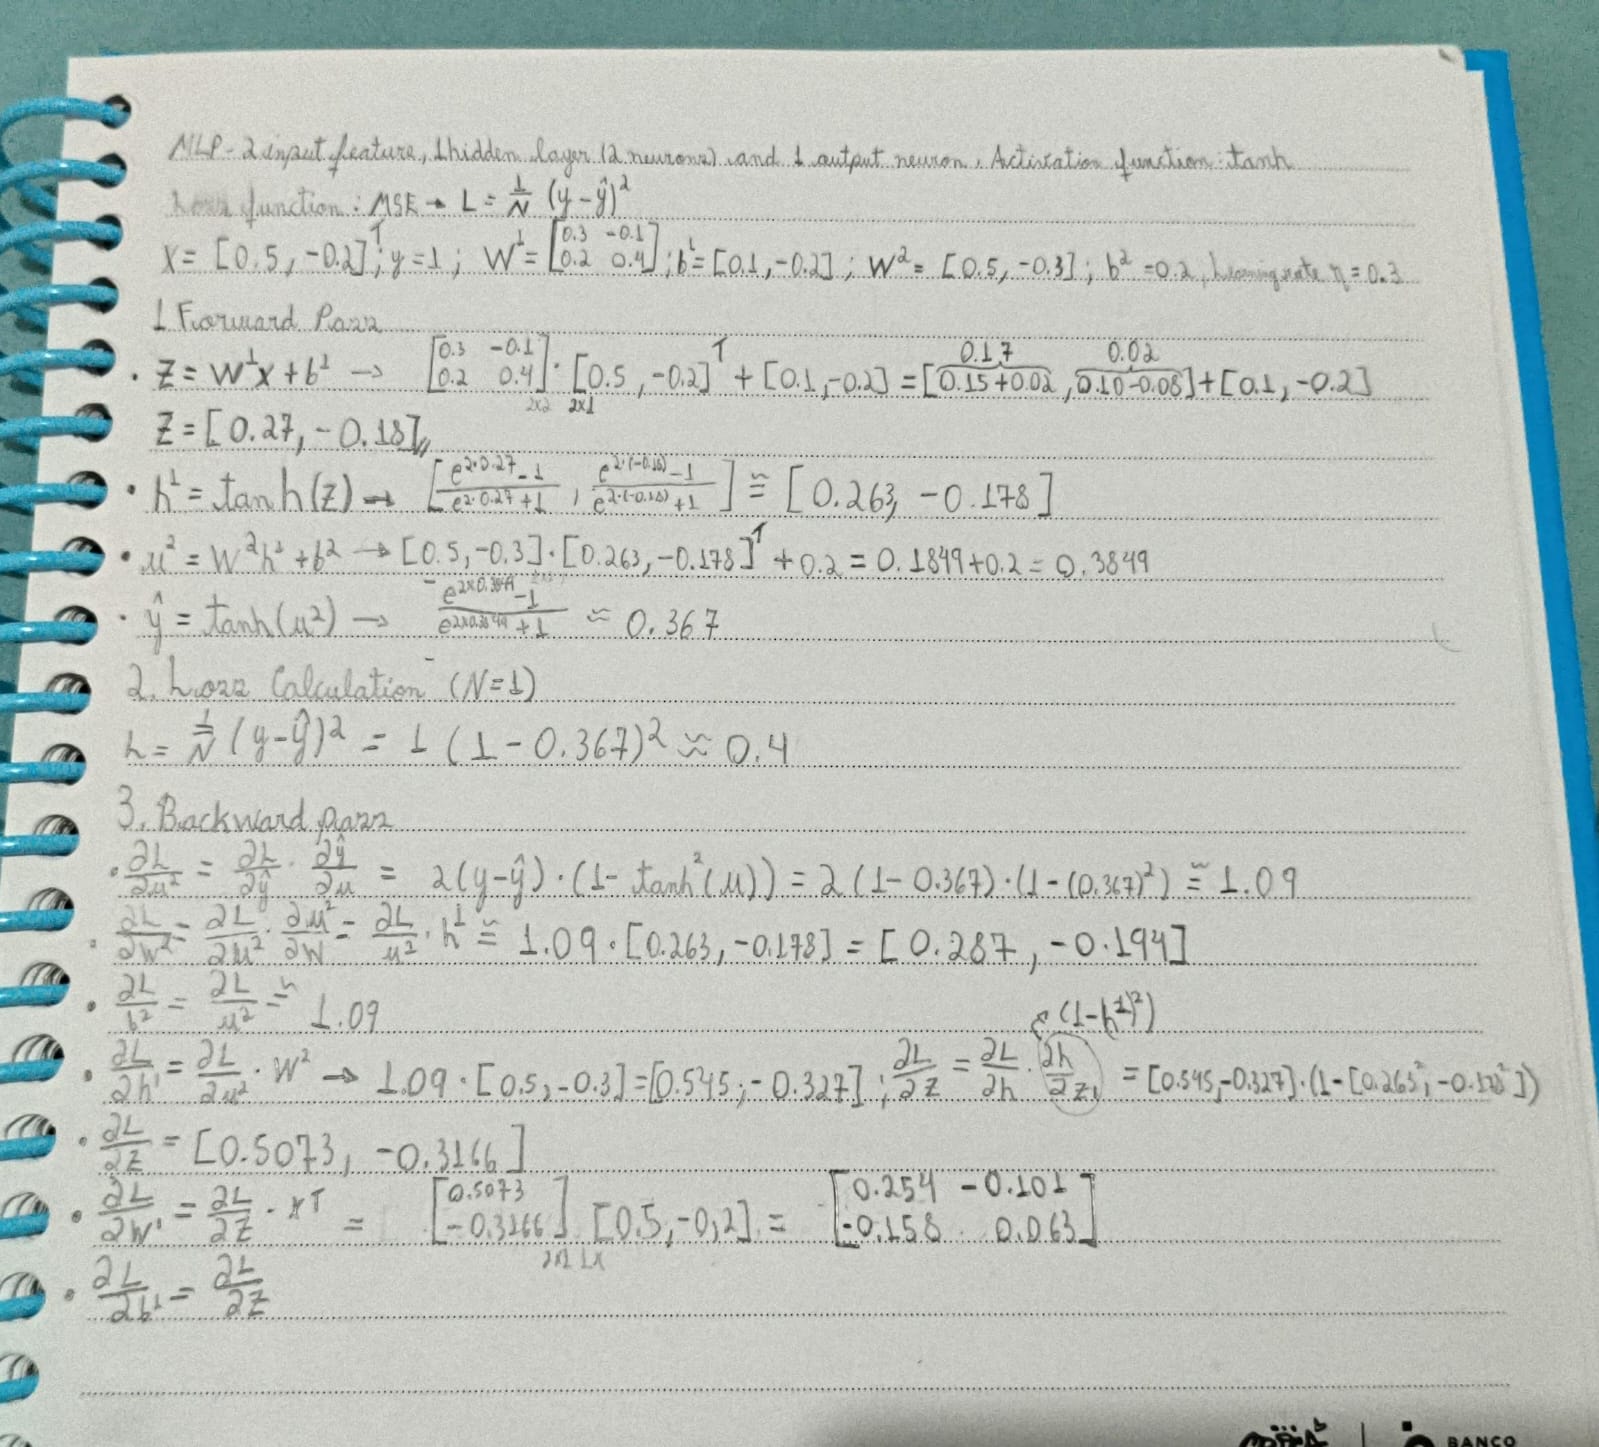 MLP - 2 input feature, 1 hidden layer (2 neurons) and 1 output neuron, Activation function: tanh
Loss function: MSE → L = 1/N (y-ŷ)²
X = [0.5, -0.2]ᵀ; y=1; W¹= [0.3 -0.1; 0.2 0.4]; b¹= [0.1, -0.2]; W²= [0.5, -0.3]; b²=0.2, Learning rate η = 0.3
1 Forward Pass
• Z = W¹x + b¹ → [0.3 -0.1; 0.2 0.4] · [0.5, -0.2]ᵀ + [0.1, -0.2] = [0.15+0.02, 0.10-0.08] + [0.1, -0.2]
0.17 0.02
2x2 2x1
Z = [0.27, -0.18]
• h¹ = tanh(z) → [(e^2·0.27 -1)/(e^2·0.27 +1), (e^2·(-0.18) -1)/(e^2·(-0.18) +1)] ≅ [0.263, -0.178]
• u² = W²h¹ + b² → [0.5, -0.3] · [0.263, -0.178]ᵀ + 0.2 = 0.1849 + 0.2 = 0.3849
• ŷ = tanh(u²) → (e^2x0.3849 -1)/(e^2x0.3849 +1) ≈ 0.367
2. Loss Calculation (N=1)
L = 1/N (y-ŷ)² = 1 (1-0.367)² ≈ 0.4
3. Backward pass
• ∂L/∂u² = ∂L/∂ŷ · ∂ŷ/∂u = 2(y-ŷ)·(1-tanh²(u)) = 2(1-0.367)·(1-(0.367)²) ≅ 1.09
• ∂L/∂W² = ∂L/∂u² · ∂u²/∂W = ∂L/u² · h¹ ≅ 1.09 · [0.263, -0.178] = [0.287, -0.194]
• ∂L/b² = ∂L/u² ≅ 1.09
(1-h¹²)
• ∂L/∂h¹ = ∂L/∂u² · W² → 1.09 · [0.5, -0.3] = [0.545; -0.327]; ∂L/∂Z = ∂L/∂h · ∂h/∂Z₁ = [0.545, -0.327]·(1-[0.263², -0.178²])
• ∂L/∂Z = [0.5073, -0.3166]
• ∂L/∂W¹ = ∂L/∂Z · xᵀ = [0.5073; -0.3166] [0.5, -0,2] = [0.254 -0.101; -0.158 0.063]
• ∂L/∂b¹ = ∂L/∂Z
BANCO